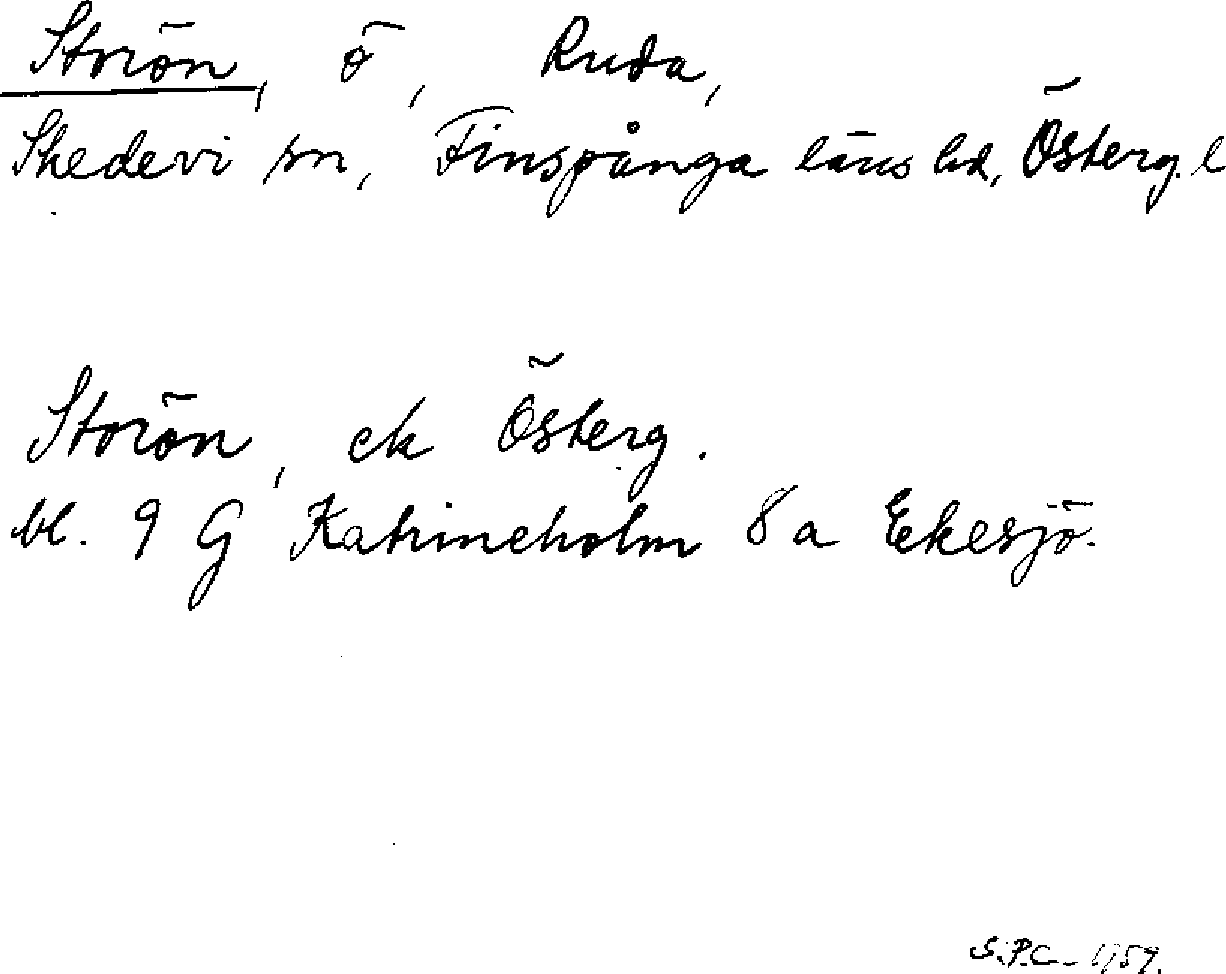 Storön, ö, Ruda,
Skedevi sn, Finspånga läns hd, Österg. l
Storön, ek Österg.
bl. 9 G Katrineholm 8 a Ekesjö.
S.P.C. 1959.